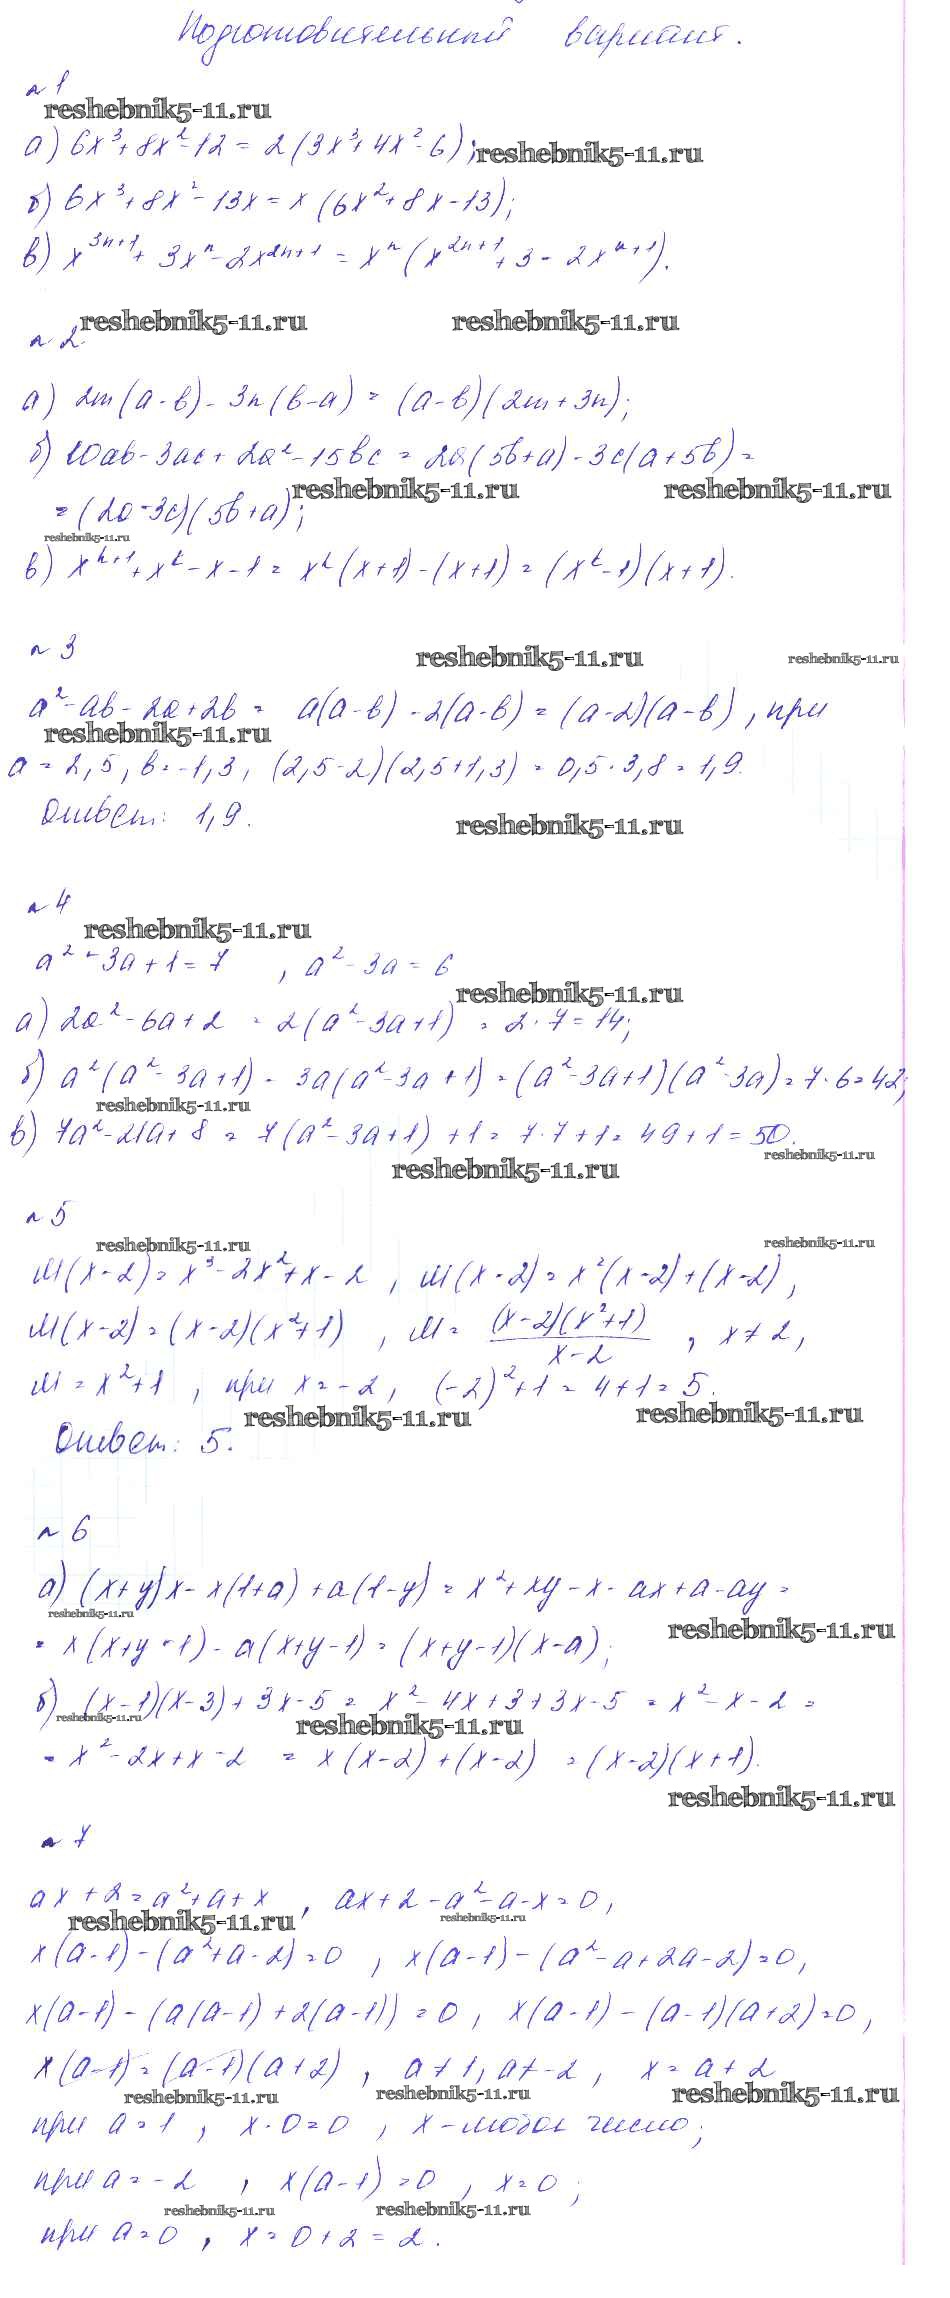 Подготовительный вариант.
№ 1
reshebnik5-11.ru
а) 6x³+8x²-12 = 2(3x³+4x²-6); reshebnik5-11.ru
б) 6x³+8x²-13x = x(6x²+8x-13);
в) x³ⁿ⁺¹+3xⁿ-2x²ⁿ⁺¹ = xⁿ(x²ⁿ⁺¹+3-2xⁿ⁺¹).
reshebnik5-11.ru reshebnik5-11.ru
№ 2
а) 2m(a-b)-3n(b-a) = (a-b)(2m+3n);
б) 10ab-3ac+2a²-15bc = 2a(5b+a)-3c(a+5b) =
reshebnik5-11.ru reshebnik5-11.ru
= (2a-3c)(5b+a);
reshebnik5-11.ru
в) xᵏ⁺¹+xᵏ-x-1 = xᵏ(x+1)-(x+1) = (xᵏ-1)(x+1).
№ 3
reshebnik5-11.ru reshebnik5-11.ru
a²-ab-2a+2b = a(a-b)-2(a-b) = (a-2)(a-b), при
reshebnik5-11.ru
a = 2,5, b = -1,3, (2,5-2)(2,5+1,3) = 0,5·3,8 = 1,9.
Ответ: 1,9.
reshebnik5-11.ru
№ 4
reshebnik5-11.ru
a²-3a+1 = 7, a²-3a = 6
reshebnik5-11.ru
а) 2a²-6a+2 = 2(a²-3a+1) = 2·7 = 14;
б) a²(a²-3a+1)-3a(a²-3a+1) = (a²-3a+1)(a²-3a) = 7·6 = 42;
reshebnik5-11.ru
в) 7a²-21a+8 = 7(a²-3a+1)+1 = 7·7+1 = 49+1 = 50.
reshebnik5-11.ru reshebnik5-11.ru
№ 5
reshebnik5-11.ru reshebnik5-11.ru
M(x-2) = x³-2x²+x-2, M(x-2) = x²(x-2)+(x-2),
M(x-2) = (x-2)(x²+1), M = (x-2)(x²+1)/x-2, x≠2,
M = x²+1, при x = -2, (-2)²+1 = 4+1 = 5.
reshebnik5-11.ru reshebnik5-11.ru
Ответ: 5.
№ 6
а) (x+y)x-x(1+a)+a(1-y) = x²+xy-x-ax+a-ay =
reshebnik5-11.ru reshebnik5-11.ru
= x(x+y-1)-a(x+y-1) = (x+y-1)(x-a);
б) (x-1)(x-3)+3x-5 = x²-4x+3+3x-5 = x²-x-2 =
reshebnik5-11.ru reshebnik5-11.ru
= x²-2x+x-2 = x(x-2)+(x-2) = (x-2)(x+1).
reshebnik5-11.ru
№ 7
ax+2 = a²+a+x, ax+2-a²-a-x = 0,
reshebnik5-11.ru reshebnik5-11.ru
x(a-1)-(a²+a-2) = 0, x(a-1)-(a²-a+2a-2) = 0,
x(a-1)-(a(a-1)+2(a-1)) = 0, x(a-1)-(a-1)(a+2) = 0,
x(a-1) = (a-1)(a+2), a≠1, a≠-2, x = a+2
reshebnik5-11.ru reshebnik5-11.ru reshebnik5-11.ru
при a = 1, x·0 = 0, x - любое число;
при a = -2, x(a-1) = 0, x = 0;
reshebnik5-11.ru reshebnik5-11.ru
при a = 0, x = 0+2 = 2.